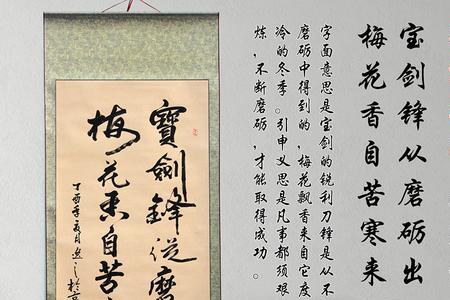 宝剑锋从磨砺出
梅花香自苦寒来
字面意思是宝剑的锐利刀锋是从不
磨砺中得到的，梅花飘香来自它度
冷的冬季。引申义思是凡事都须艰
炼，不断磨砺，才能取得成功。
寶劍鋒從磨
梅花香自苦
丁酉年夏月